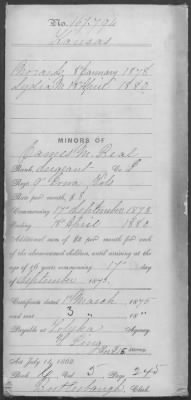 No. 167.794
Kansas
8 January 1878
Lydia M 18 April 1880
MINORS OF
James M. Beal
Rank, Sergeant Co.
Regt. 9" Iowa Vols
Rate per month, $8
Commencing 17 September 1873
Ending 18 April 1880
Additional sum of $2 per month for each
of the above-named children, until arriving at the
age of 16 years, commencing 17 day
of September 1873.
Certificate dated 1 March 1875
and sent 3 " 18"
Payable at Topeka Agency.
Act July 14, 1862.
Book Vol. 5 Page 245
Clerk.